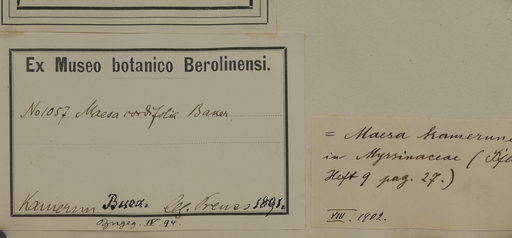 Ex Museo botanico Berolinensi.
No 1057 Maesa cordifolia Baker.
Kamerun Buea. leg. Preuss 1891.
IV 94.
= Maesa kamerune
in Myrsinaceae (
Heft 9 pag. 27.)
VIII. 1902.